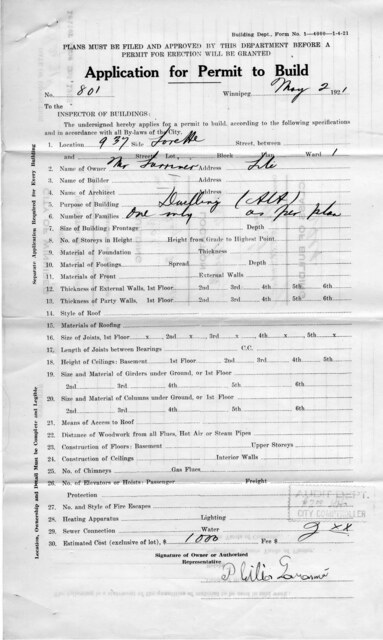 Building Dept., Form No. 1—4000—1-4-21
PLANS MUST BE FILED AND APPROVED BY THIS DEPARTMENT BEFORE A
PERMIT FOR ERECTION WILL BE GRANTED
Application for Permit to Build
No. 801 Winnipeg, May 2 1921
To the
INSPECTOR OF BUILDINGS:
The undersigned hereby applies for a permit to build, according to the following specifications
and in accordance with all By-laws of the City.
1. Location 937 Side Lorette Street, between
and Street Lot Block Plan Ward 1
2. Name of Owner Mr Address
3. Name of Builder Address
4. Name of Architect Address
5. Purpose of Building Dwelling (Alt)
6. Number of Families One only as per plan
7. Size of Building: Frontage Depth
8. No. of Storeys in Height Height from Grade to Highest Point
9. Material of Foundation Thickness
10. Material of Footings Spread Depth
11. Materials of Front External Walls
12. Thickness of External Walls, 1st Floor 2nd 3rd 4th 5th 6th
13. Thickness of Party Walls, 1st Floor 2nd 3rd 4th 5th 6th
14. Style of Roof
15. Materials of Roofing
16. Size of Joists, 1st Floor x 2nd x 3rd x 4th x 5th x
17. Length of Joists between Bearings C.C.
18. Height of Ceilings: Basement 1st Floor 2nd 3rd 4th 5th
19. Size and Material of Girders under Ground, or 1st Floor
2nd 3rd 4th 5th 6th
20. Size and Material of Columns under Ground, or 1st Floor
2nd 3rd 4th 5th 6th
21. Means of Access to Roof
22. Distance of Woodwork from all Flues, Hot Air or Steam Pipes
23. Construction of Floors: Basement Upper Storeys
24. Construction of Ceilings Interior Walls
25. No. of Chimneys Gas Flues
26. No. of Elevators or Hoists: Passenger Freight
Protection
27. No. and Style of Fire Escapes
AUDIT DEPT.
CITY COMPTROLLER
28. Heating Apparatus Lighting
29. Sewer Connection Water
30. Estimated Cost (exclusive of lot), $ 1000 Fee $ 2 xx
Signature of Owner or Authorized
Representative
Separate Application Required for Every Building
Location, Ownership and Detail Must be Complete and Legible